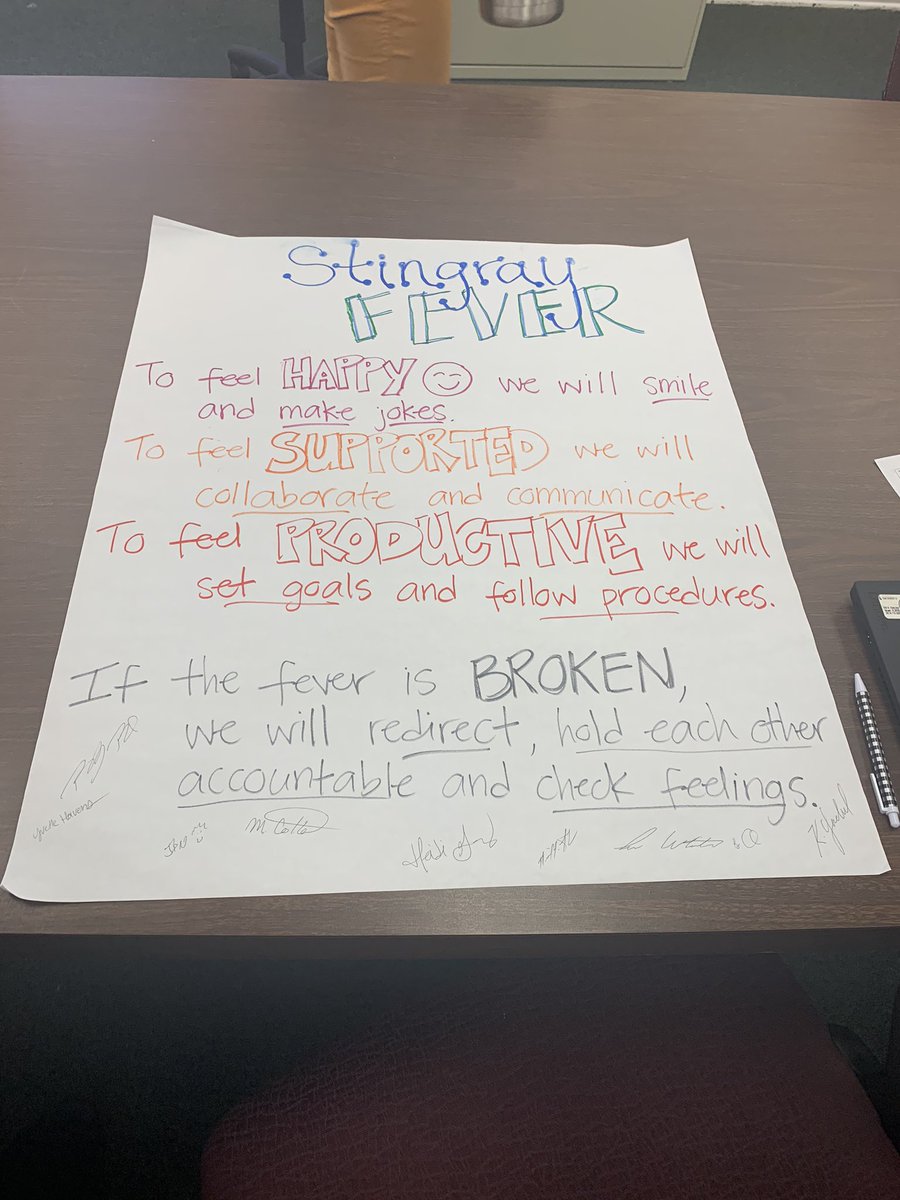 Stingray
FEVER
To feel HAPPY we will smile
and make jokes.
To feel SUPPORTED we will
collaborate and communicate.
To feel PRODUCTIVE we will
set goals and follow procedures.
If the fever is BROKEN,
we will redirect, hold each other
accountable and check feelings.
Yvette Havens
Heidi